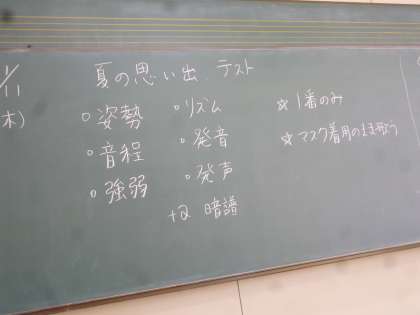 /11
木)
夏の思い出 テスト
○姿勢 ○リズム ☆1番のみ
○音程 ○発音 ☆マスク着用のまま歌う
○強弱 ○発声
+2 暗譜